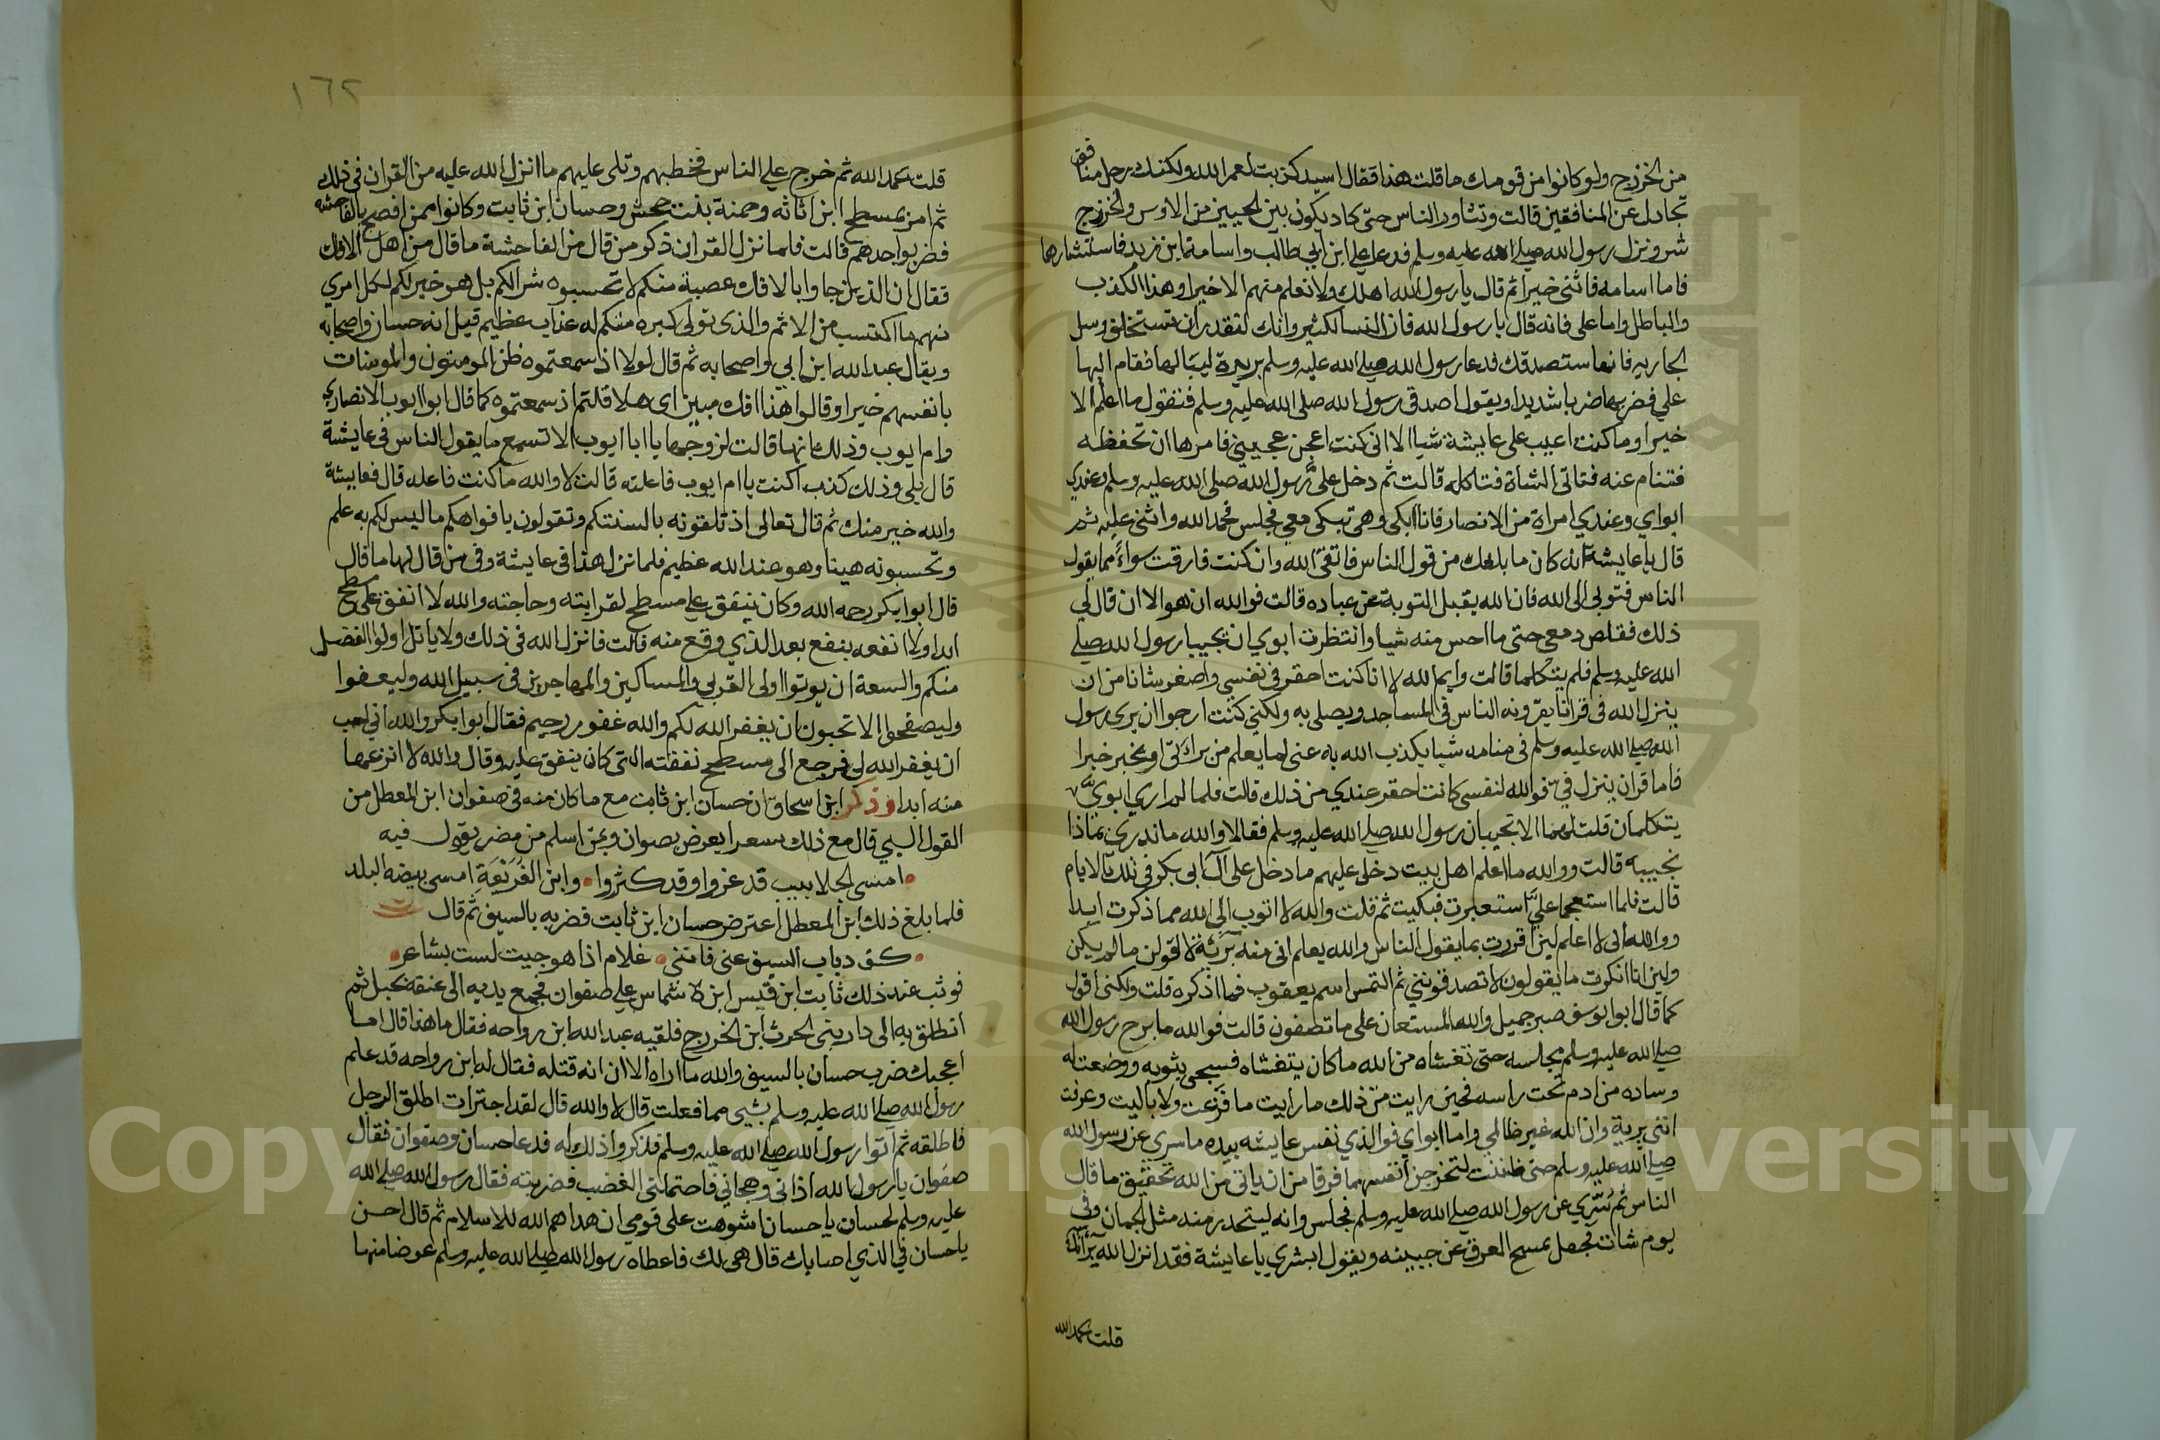 من الخزرج ولو كانوا من قومك ما قلت هذا فقال اسيد كذبت لعمر الله ولكنك رجل منافق
تجادل عن المنافقين قالت وتثاور الناس حتى كاد يكون بين الحيين من الاوس والخزرج
شر ونزل رسول الله صلى الله عليه وسلم فدعا علي ابن ابي طالب واسامة ابن زيد فاستشارهما
فاما اسامه فاثنى خيرا ثم قال يا رسول الله اهلك ولا نعلم منهم الا خيرا وهذا الكذب
والباطل واما علي فانه قال يا رسول الله فان النسا لكثير وانك لتقدر ان تستخلف وسل
الجاريه فانها ستصدقك فدعا رسول الله صلى الله عليه وسلم بريرة ليسالها فقام اليها
علي فضربها ضربا شديدا ويقول اصدقي رسول الله صلى الله عليه وسلم فتقول ما اعلم الا
خيرا وما كنت اعيب على عايشة شيا الا اني كنت اعجن عجيني فامرها ان تحفظه
فتنام عنه فتاتي الشاة فتاكله قالت ثم دخل علي رسول الله صلى الله عليه وسلم وعندي
ابواي وعندي امراة من الانصار فانا ابكي وهي تبكي معي فجلس فحمد الله واثنى عليه ثم
قال يا عايشة انه كان ما بلغك من قول الناس فاتقي الله وان كنت قارفت سواء مما يقول
الناس فتوبي الى الله فان الله يقبل التوبة عن عباده قالت فوالله ان هو الا ان قال لي
ذلك فقلص دمعي حتى ما احس منه شيا وانتظرت ابوي ان يجيبا رسول الله صلى
الله عليه وسلم فلم يتكلما قالت وايم الله لانا كنت احقر في نفسي واصغر شانا من ان
ينزل الله في قرانا يقرونه الناس في المساجد ويصلى به ولكني كنت ارجوا ان يرى رسول
الله صلى الله عليه وسلم في منامه شيا يكذب الله به عني لما يعلم من براتي او يخبر خبرا
فاما قران ينزل في فوالله لنفسي كانت احقر عندي من ذلك قالت فلما لم اري ابوي
يتكلمان قلت لهما الا تجيبان رسول الله صلى الله عليه وسلم فقالا والله ما ندري بماذا
نجيبه قالت ووالله ما اعلم اهل بيت دخل عليهم ما دخل على آل ابي بكر في تلك الايام
قالت فلما استعجما علي استعبرت فبكيت ثم قلت والله لا اتوب الى الله مما ذكرت ابدا
ووالله اني لا اعلم لين اقررت بما يقول الناس والله يعلم اني منه بريئة لاقولن ما لم يكن
ولين انا انكرت ما يقولون لا تصدقونني ثم التمس اسم يعقوب فما اذكره قلت ولكني اقول
كما قال ابوا يوسف صبر جميل والله المستعان على ما تصفون قالت فوالله ما برح رسول الله
صلى الله عليه وسلم مجلسه حتى تغشاه من الله ما كان يتغشاه فسجي بثوبه ووضعت له
وساده من ادم تحت راسه فحين رايت من ذلك ما رايت ما فزعت ولا باليت وعرفت
انني برية وان الله غير ظالمي واما ابواي فوالذي نفس عايشه بيده ما سري عن رسول الله
صلى الله عليه وسلم حتى ظننت لتخرجن انفسهما فرقا من ان ياتي من الله تحقيق ما قال
الناس ثم سري عن رسول الله صلى الله عليه وسلم فجلس وانه ليتحدر منه مثل الجمان وفي
يوم شات فجعل يمسح العرق عن جبينه ويقول ابشري يا عايشة فقد انزل الله برآتك
قلت بحمد الله
١٦٢
قلت بحمد الله ثم خرج على الناس فخطبهم وتلى عليهم ما انزل الله عليه من القران في ذلك
ثم امر بمسطح ابن اثاثه وحمنة بنت جحش وحسان ابن ثابت وكانوا ممن افصح بالفاحشه
فضربوا حدهم قالت فلما نزل القران ذكر من قال من الفاحشة ما قال من اهل الافك
فقال ان الذين جاوا بالافك عصبة منكم لا تحسبوه شرا لكم بل هو خير لكم لكل امري
منهم ما اكتسب من الاثم والذي تولى كبره منكم له عذاب عظيم قيل انه حسان واصحابه
ويقال عبد الله ابن ابي واصحابه ثم قال لولا اذ سمعتموه ظن المومنون والمومنات
بانفسهم خيرا وقالوا هذا افك مبين اي هلا قلتم اذ سمعتموه كما قال ابوا ايوب الانصاري
وام ايوب وذلك انها قالت لزوجها يا ابا ايوب الا تسمع ما يقول الناس في عايشة
قال بلى وذلك كذب اكنت يا ام ايوب فاعلته قالت لا والله ما كنت فاعله قال فعايشة
والله خير منك ثم قال تعالى اذ تلقونه بالسنتكم وتقولون بافواهكم ما ليس لكم به علم
وتحسبونه هينا وهو عند الله عظيم فلما نزل هذا في عايشة وفي من قال لها ما قال
قال ابوا بكر رحمه الله وكان ينفق على مسطح لقرابته وحاجته والله لا انفق على مسطح
ابدا ولا انفعه بنفع بعد الذي وقع منه قالت فانزل الله في ذلك ولا ياتل اولوا الفضل
منكم والسعة ان يوتوا اولى القربى والمساكين والمهاجرين في سبيل الله وليعفوا
وليصفحوا الا تحبون ان يغفر الله لكم والله غفور رحيم فقال ابوا بكر والله اني احب
ان يغفر الله لي فرجع الى مسطح نفقته التي كان ينفق عليه وقال والله لا انزعها
منه ابدا وذكر ابن اسحاق ان حسان ابن ثابت مع ما كان منه في صفوان ابن المعطل من
القول السي قال مع ذلك سعرا يعرض بصوان وبمن اسلم من مضر يقول فيه
امسى الجلابيب قد عزوا وقد كثروا وابن الفريعة امسى بيضه البلد
فلما بلغ ذلك ابن المعطل اعترض حسان ابن ثابت فضربه بالسيف ثم قال
دباب السيف عني فانني غلام اذا هوجيت لست بشاعر
فوثب عند ذلك ثابت ابن قيس ابن شماس على صفوان فجمع يديه الى عنقه بحبل ثم
انطلق به الى دار بني الحرث ابن الخزرج فلقيه عبد الله ابن رواحه فقال ما هذا قال اما
اعجبك ضرب حسان بالسيف والله ما اراه الا ان انه قتله فقال له ابن رواحه قد علم
رسول الله صلى الله عليه وسلم بشي مما فعلت قال لا والله قال لقد اجترات اطلق الرجل
فاطلقه ثم آتوا رسول الله صلى الله عليه وسلم فذكروا ذلك له فدعا حسان وصفوان فقال
صفوان يا رسول الله اذاني وهجاني فاحتملني الغضب فضربته فقال رسول الله صلى الله
عليه وسلم لحسان يا حسان اشوهت على قومي ان هداهم الله للاسلام ثم قال احسن
يا حسان في الذي اصابك قال هي لك فاعطاه رسول الله صلى الله عليه وسلم عوضا منها